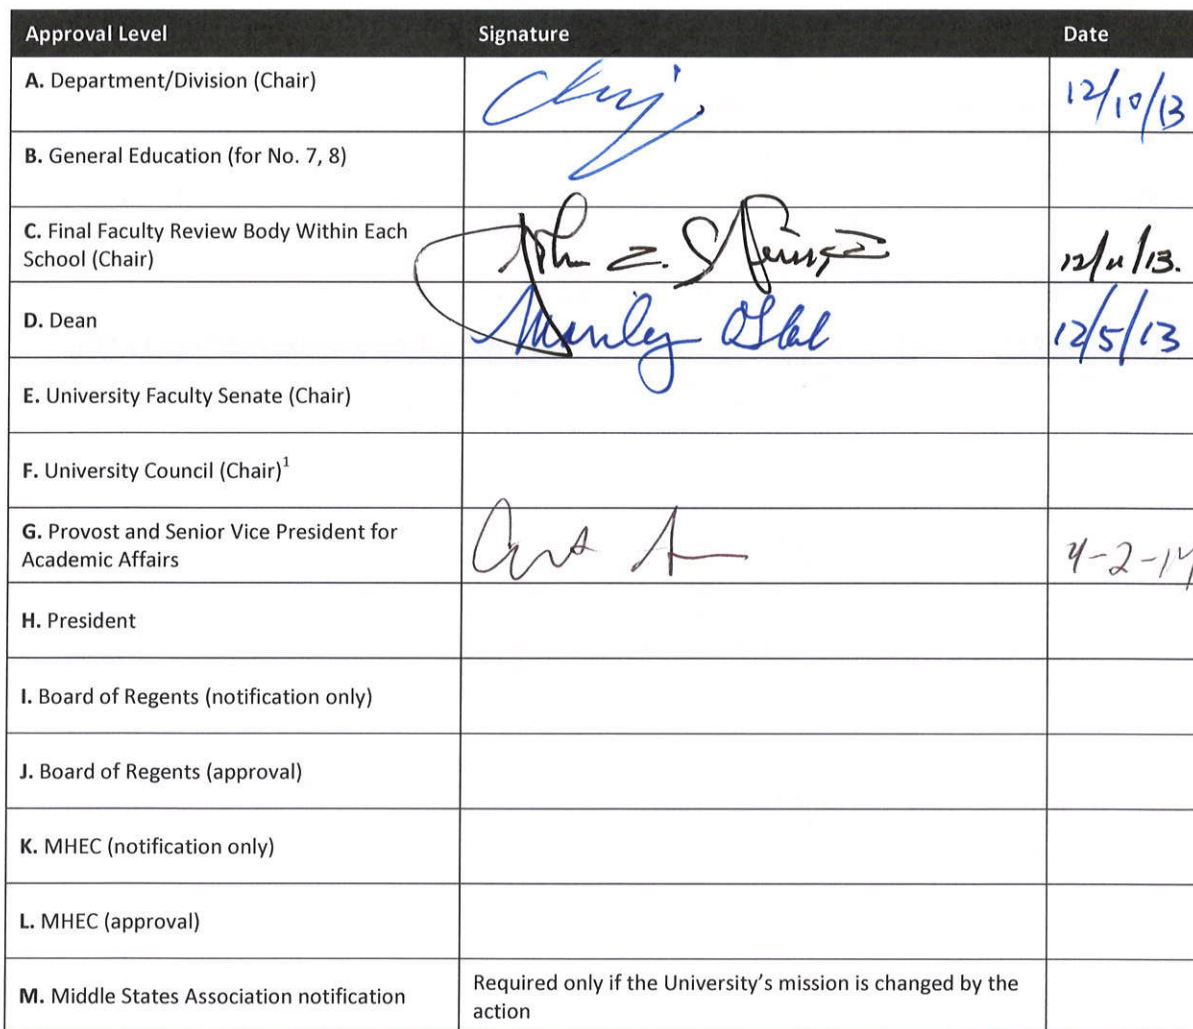 Approval Level Signature Date
A. Department/Division (Chair) 12/10/13
B. General Education (for No. 7, 8)
C. Final Faculty Review Body Within Each
School (Chair) John Z. 12/11/13.
D. Dean Marilyn 12/5/13
E. University Faculty Senate (Chair)
F. University Council (Chair)1
G. Provost and Senior Vice President for
Academic Affairs 4-2-14
H. President
I. Board of Regents (notification only)
J. Board of Regents (approval)
K. MHEC (notification only)
L. MHEC (approval)
M. Middle States Association notification Required only if the University's mission is changed by the
action